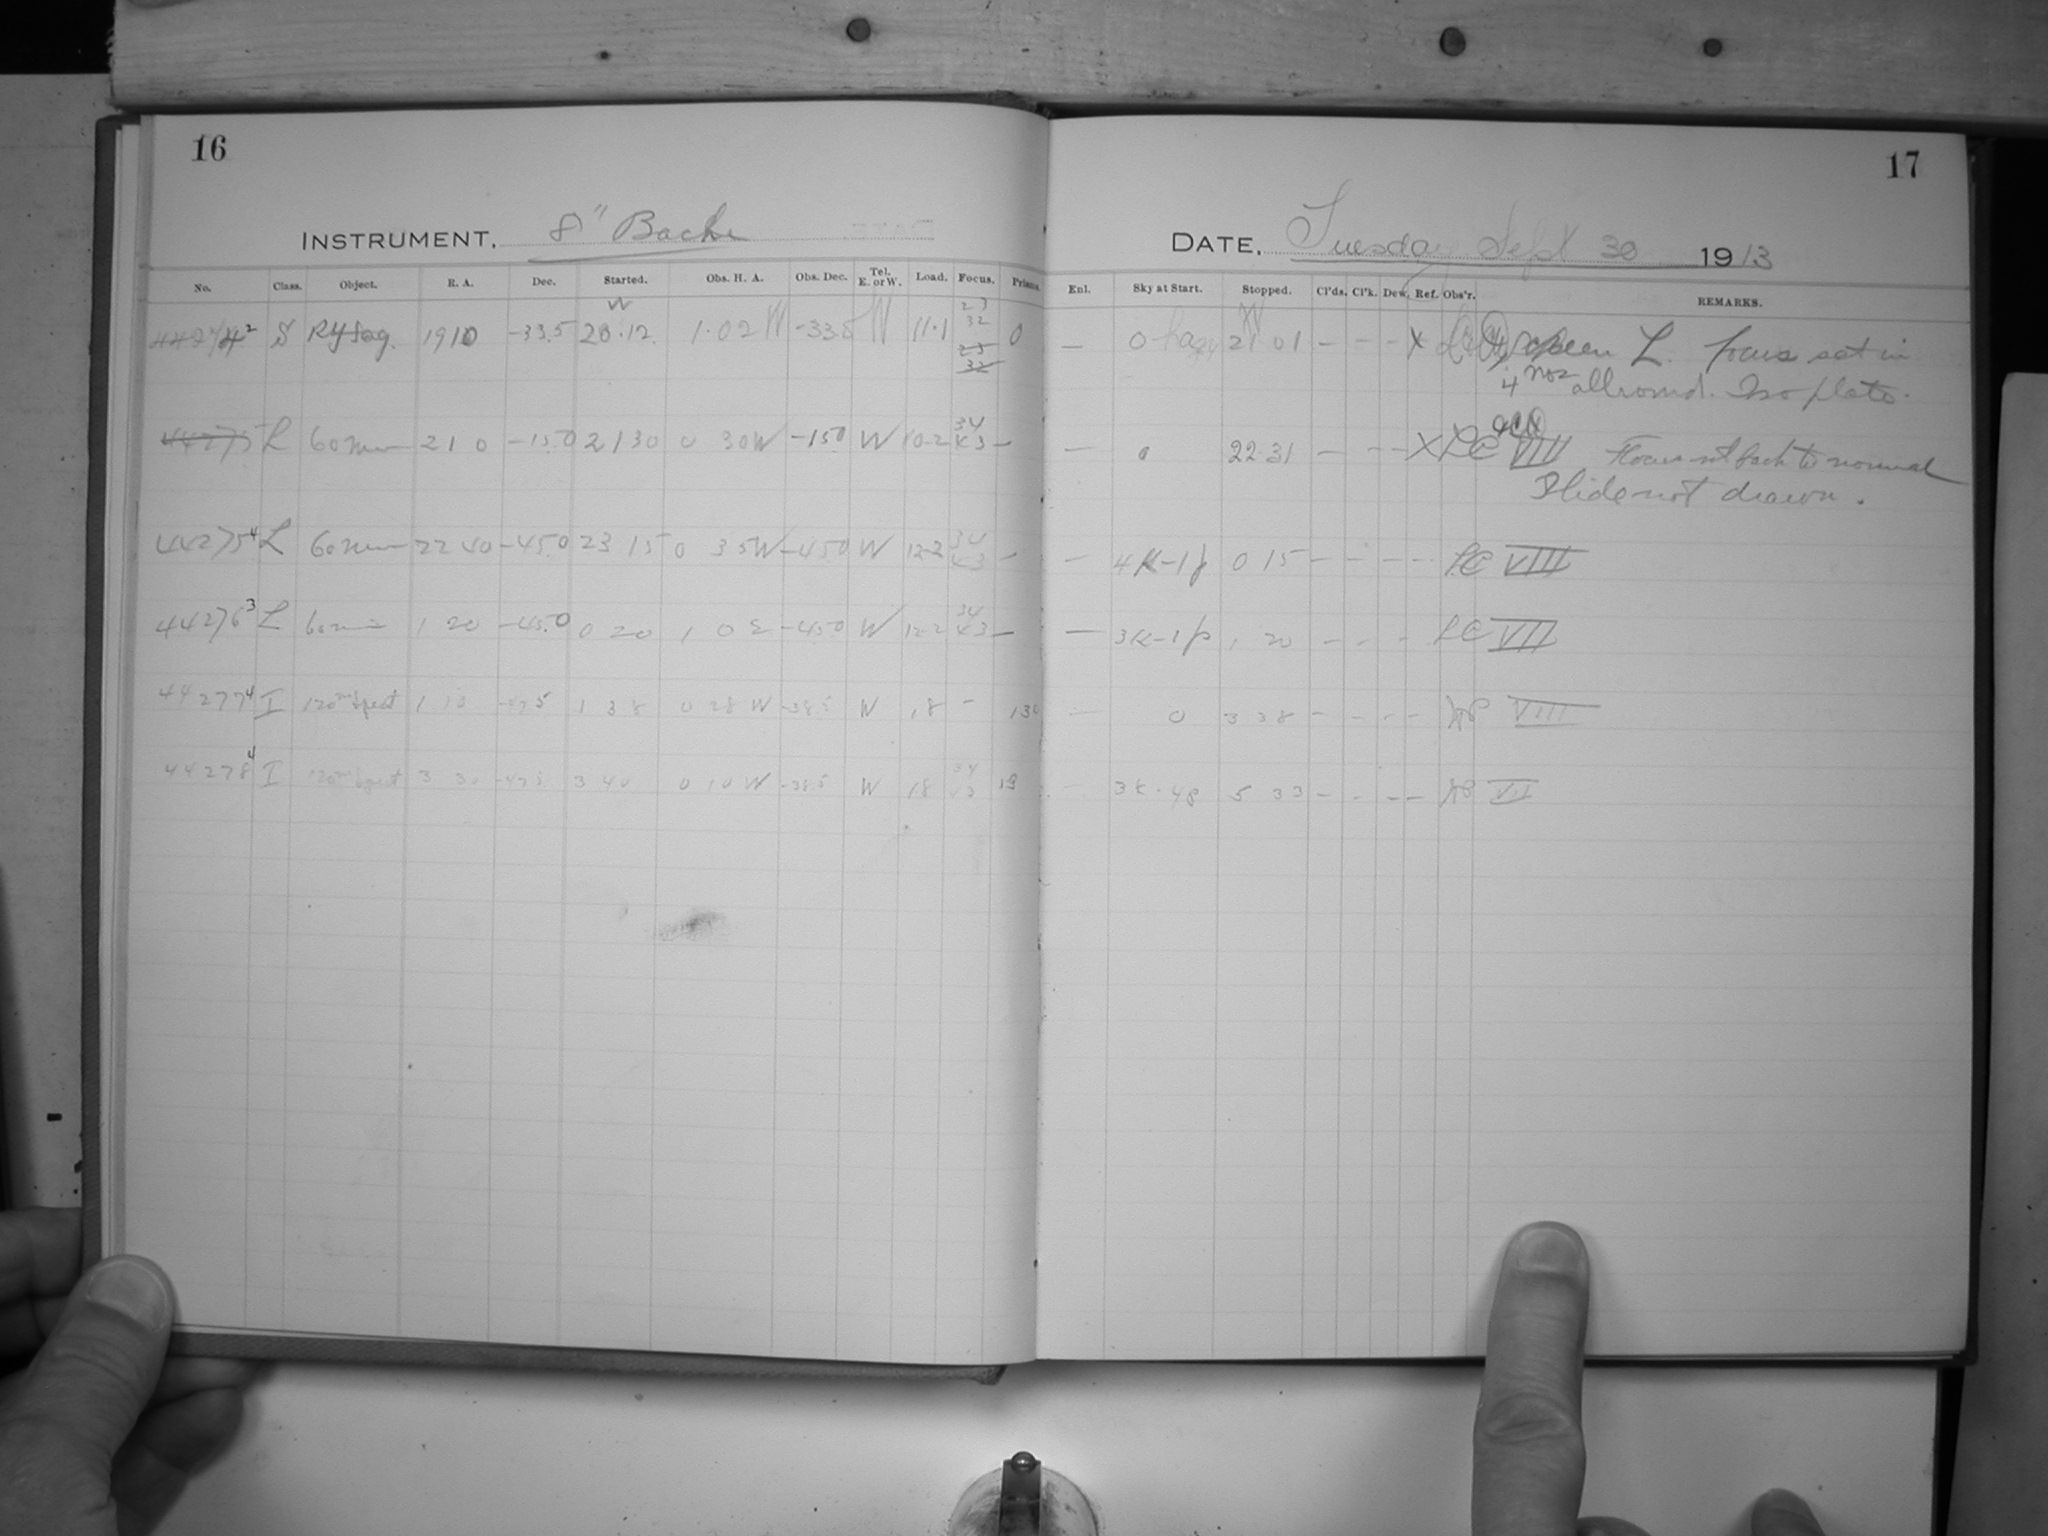 16
17
INSTRUMENT, 8" Bache
DATE, Tuesday Sept 30 1913
No. Class. Object. R. A. Dec. Started. Obs. H. A. Obs. Dec. Tel. E. or W. Load. Focus. Prisms. Enl. Sky at Start. Stopped. Cl'ds. Cl'k. Dew. Ref. Obs'r. REMARKS.
44274² S RY Sag. 1910 -33.5 W 20.12 1.02 W -33.5 W 11.1 23 32 0 — 0 hazy W 21 01 - - - X L. focus set in
4 nos allround. Iso plate.
44275 L 60m 21 0 -15.0 21 30 0 30 W -150 W 10-2 34 43 — — 0 22.31 — - - X LC VIII Focus set back to normal
Slide not drawn.
44275⁴ L 60m 22 40 -45.0 23 15 0 35 W -450 W 12-2 34 43 — — 4K-1p 0 15 - - - - LC VIII
44276³ L 60m 1 20 -45.0 0 20 1 0 E -450 W 12-2 34 43 — — 3K-1p 1 20 - - - LC VII
44277⁴ I 120m Spect 1 10 -475 1 38 0 28 W -385 W 18 - 13 — 0 3 38 - - - - VIII
44278⁴ I 120m Spect 3 30 -475 3 40 0 10 W -385 W 18 34 43 13 — 3K-48 5 33 - - - - VII